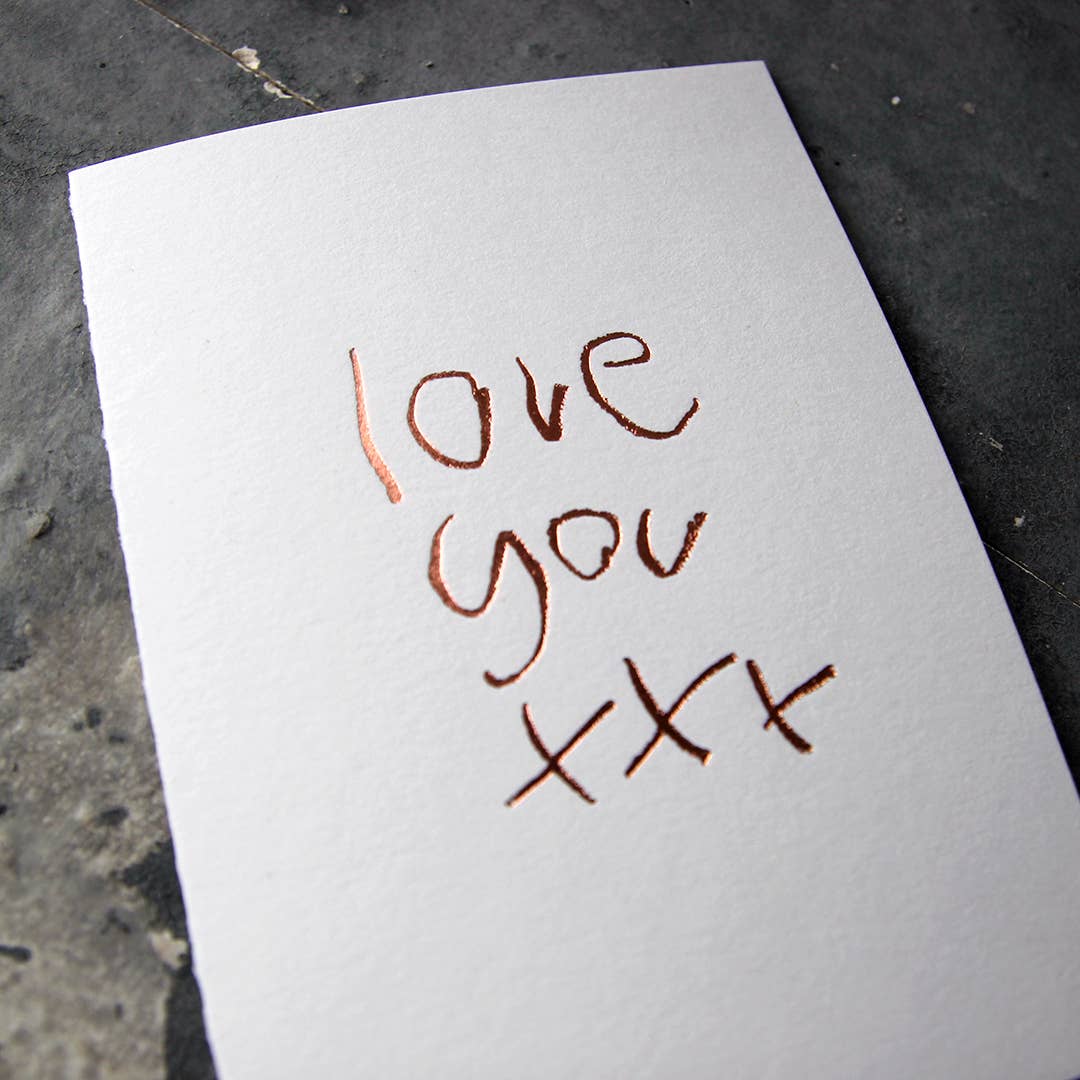 love
you
xxx